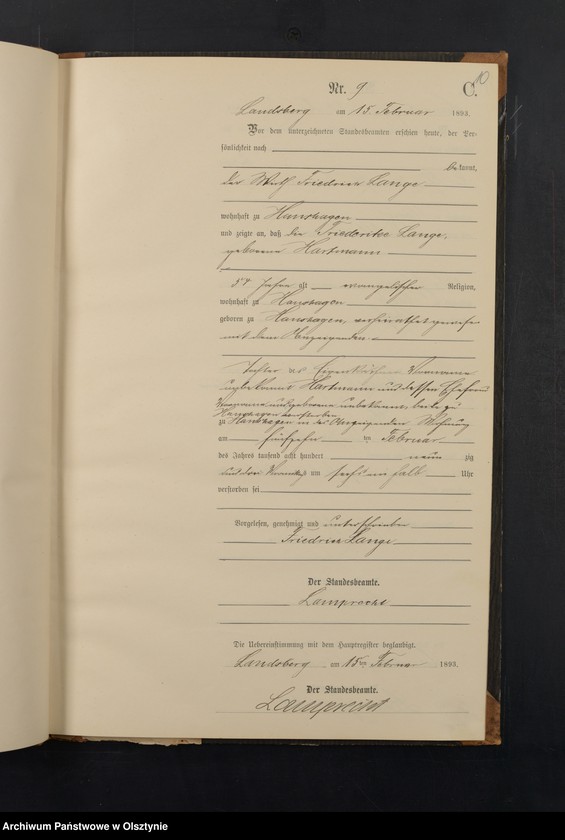 10
Nr. 9 C.
Landsberg am 15. Februar 1893.
Vor dem unterzeichneten Standesbeamten erschien heute, der Per-
sönlichkeit nach
bekannt,
der Wirth Friedrich Lange
wohnhaft zu Hanshagen
und zeigte an, daß die Friederike Lange,
geborene Hartmann
54 Jahre alt evangelischer Religion,
wohnhaft zu Hanshagen
geboren zu Hanshagen, verheirathet gewesen
mit dem Anzeigenden
Tochter des Vorname
unbekannt Hartmann und dessen Ehefrau
Vorname und geborene unbekannt, beide zu
Hanshagen verstorben
zu Hanshagen in des Anzeigenden Wohnung
am fünfzehn ten Februar
des Jahres tausend acht hundert neun zig
und drei Vormittags um sechs ein halb Uhr
verstorben sei
Vorgelesen, genehmigt und unterschrieben
Friedrich Lange
Der Standesbeamte.
Lamprecht
Die Uebereinstimmung mit dem Hauptregister beglaubigt.
Landsberg, am 15ten Februar 1893.
Der Standesbeamte.
Lamprecht
Archiwum Państwowe w Olsztynie